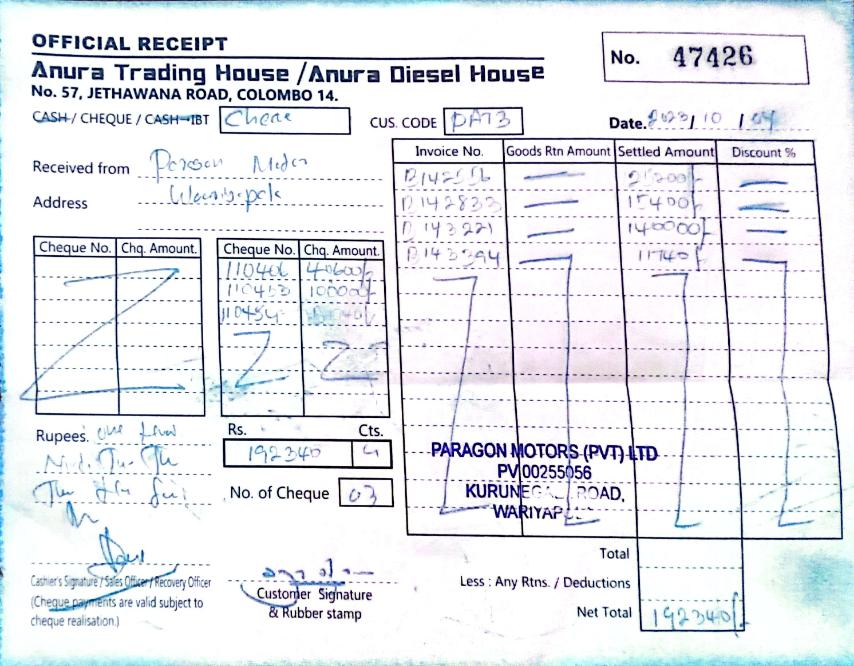 OFFICIAL RECEIPT
No. 47426
Anura Trading House / Anura Diesel House
No. 57, JETHAWANA ROAD, COLOMBO 14.
CASH / CHEQUE / CASH-IBT
CUS. CODE
Date. 2023/10/
Invoice No. Goods Rtn Amount Settled Amount Discount %
Received from
B142556
B142833 15400/-
Address
B143221 140000/-
B143394 11740/-
Cheque No. Chq. Amount. Cheque No. Chq. Amount.
110406 40600/-
110453 100000/-
110454
Rupees. one
Rs. Cts.
192340
No. of Cheque 03
PARAGON MOTORS (PVT) LTD
PV 00255056
KURUNEGALA ROAD,
WARIYAP
Total
Cashier's Signature / Sales Officer / Recovery Officer
(Cheque payments are valid subject to
cheque realisation.)
Customer Signature
& Rubber stamp
Less : Any Rtns. / Deductions
Net Total 192340/-